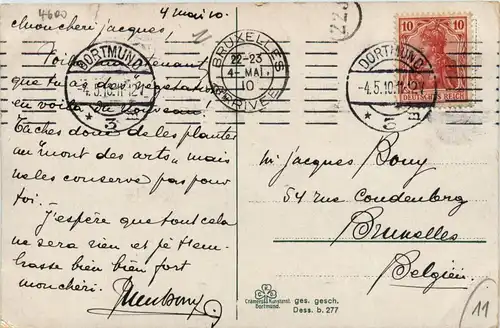 4600
4 mai 10.
Mon cheri jacques,
Voilà maintenant
que tu as des végétations
en voilà du nouveau!
Taches donc de les planter
au "mont des arts" mais
ne les conserve pas pour
toi. -
J'espère que tout cela
ne sera rien et je t'em-
brasse bien bien fort
mon cheri.
DORTMUND
-4.5.10.11-12V
* 3
BRUXELLES
22-23
4- MAI
10
ARRIVÉE
223
DORTMUND
-4.5.10.11-12V
10 10
DEUTSCHES REICH
Mr jacques Bony
54 rue Coudenberg
Bruxelles
Belgien.
Crämers Kunstanst.
Dortmund.
ges. gesch.
Dess. b. 277
11